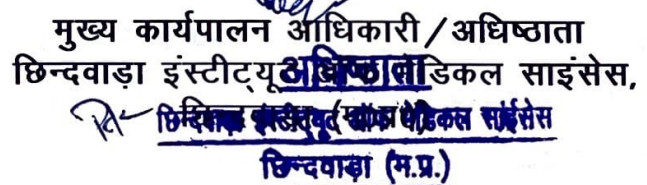 मुख्य कार्यपालन अधिकारी/अधिष्ठाता
छिन्दवाड़ा इंस्टीट्यूट ऑफ मेडिकल साइंसेस,
अधिष्ठाता
छिन्दवाड़ा (म.प्र.)
छिन्दवाड़ा इंस्टीट्यूट ऑफ मेडिकल साईंसेस
छिन्दवाड़ा (म.प्र.)